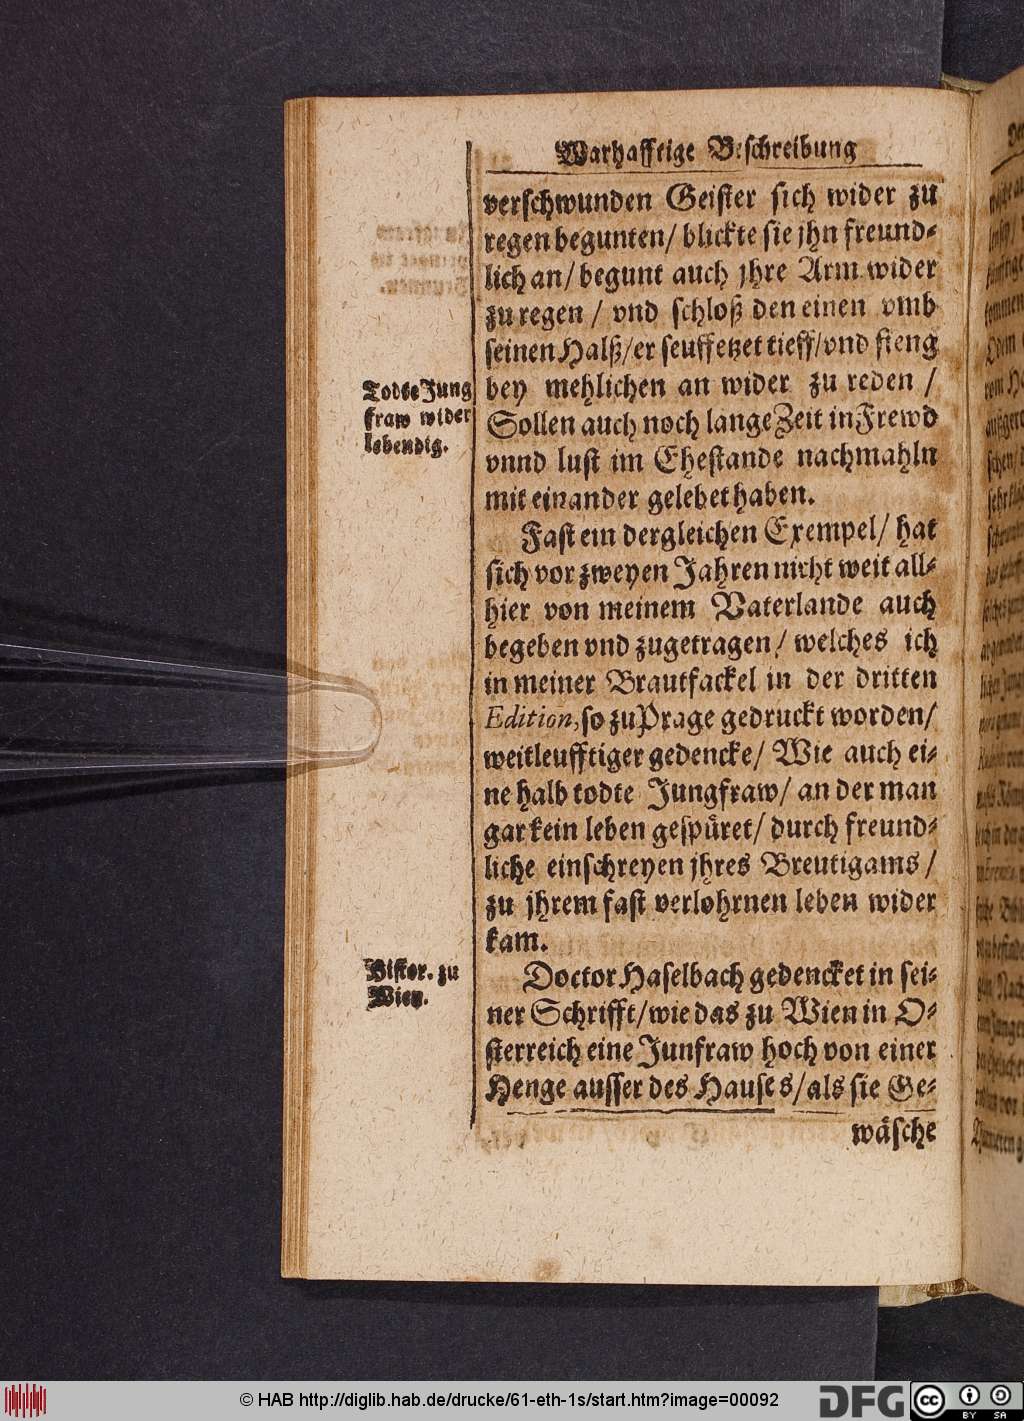 Warhafftige Beschreibung
verschwunden Geister sich wider zu
regen begunten/ blickte sie jhn freund-
lich an/ begunt auch jhre Arm wider
zu regen / vnd schloß den einen vmb
seinen Halß/ er seuffetzet tieff/ vnd fieng
bey mehlichen an wider zu reden /
Sollen auch noch lange Zeit in Frewd
vnnd lust im Ehestande nachmahln
mit einander gelebet haben.
Todte Jung
fraw wider
lebendig.
Fast ein dergleichen Exempel/ hat
sich vor zweyen Jahren nicht weit all-
hier von meinem Vaterlande auch
begeben vnd zugetragen/ welches ich
in meiner Brautfackel in der dritten
Edition, so zu Prage gedruckt worden/
weitleufftiger gedencke/ Wie auch ei-
ne halb todte Jungfraw/ an der man
gar kein leben gespüret/ durch freund-
liche einschreyen jhres Breutigams /
zu jhrem fast verlohrnen leben wider
kam.
Histor. zu
Wien.
Doctor Haselbach gedencket in sei-
ner Schrifft/ wie das zu Wien in O-
sterreich eine Junfraw hoch von einer
Henge ausser des Hauses/ als sie Ge-
wäsche
© HAB http://diglib.hab.de/drucke/61-eth-1s/start.htm?image=00092
DFG
cc
BY SA